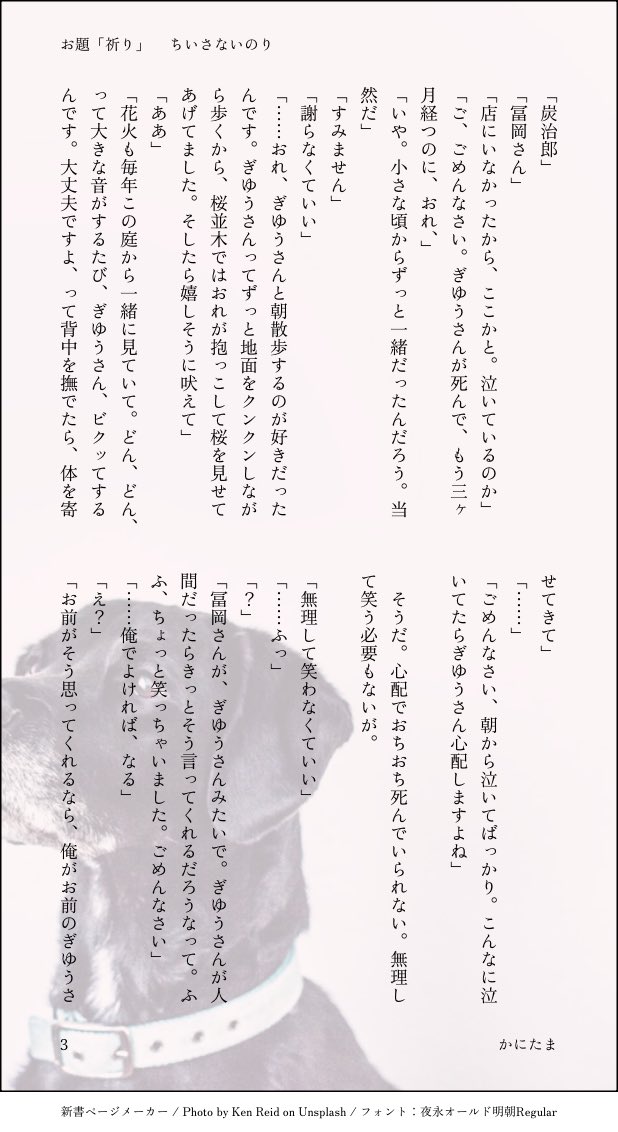 お題「祈り」　ちいさないのり
「炭治郎」
「冨岡さん」
「店にいなかったから、ここかと。泣いているのか」
「ご、ごめんなさい。ぎゆうさんが死んで、もう三ヶ
月経つのに、おれ、」
「いや。小さな頃からずっと一緒だったんだろう。当
然だ」
「すみません」
「謝らなくていい」
「……おれ、ぎゆうさんと朝散歩するのが好きだった
んです。ぎゆうさんってずっと地面をクンクンしなが
ら歩くから、桜並木ではおれが抱っこして桜を見せて
あげてました。そしたら嬉しそうに吠えて」
「ああ」
「花火も毎年この庭から一緒に見ていて。どん、どん、
って大きな音がするたび、ぎゆうさん、ビクッてする
んです。大丈夫ですよ、って背中を撫でたら、体を寄
せてきて」
「……」
「ごめんなさい、朝から泣いてばっかり。こんなに泣
いてたらぎゆうさん心配しますよね」
そうだ。心配でおちおち死んでいられない。無理し
て笑う必要もないが。
「無理して笑わなくていい」
「……ふっ」
「？」
「冨岡さんが、ぎゆうさんみたいで。ぎゆうさんが人
間だったらきっとそう言ってくれるだろうなって。ふ
ふ、ちょっと笑っちゃいました。ごめんなさい」
「……俺でよければ、なる」
「え？」
「お前がそう思ってくれるなら、俺がお前のぎゆうさ
3
かにたま
新書ページメーカー / Photo by Ken Reid on Unsplash / フォント：夜永オールド明朝Regular